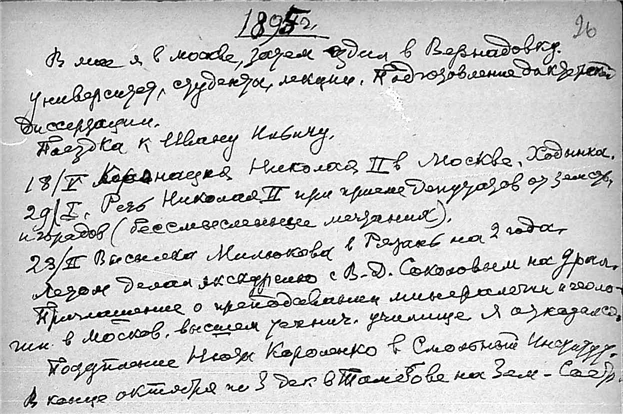 1895 г.
26
В мае я в Москве, затем ездил в Вернадовку.
Университет, студенты, лекции. Подготовление докторской
диссертации.
Поездка к Ивану Ильичу.
18/V Коронация Николая II в Москве, Ходынка.
29/I. Речь Николая II при приеме депутатов от земств
и городов (бессмысленные мечтания).
23/II Высылка Милюкова в Рязань на 2 года.
Летом делал экскурсию с В. Д. Соколовым на
Приглашение о преподавании минералогии и геоло-
гии в Москов. высшем технич. училище я отказался.
Поступление Нюты Короленко в Смольный Институт.
В конце октября по 3 дек в Тамбове на Зем-Собр.